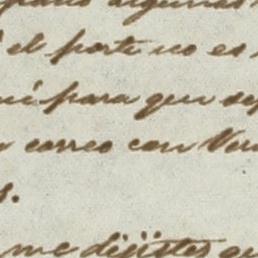 algunas
el porte no es
para que se
correo con Ver
s.
me dijistes qu